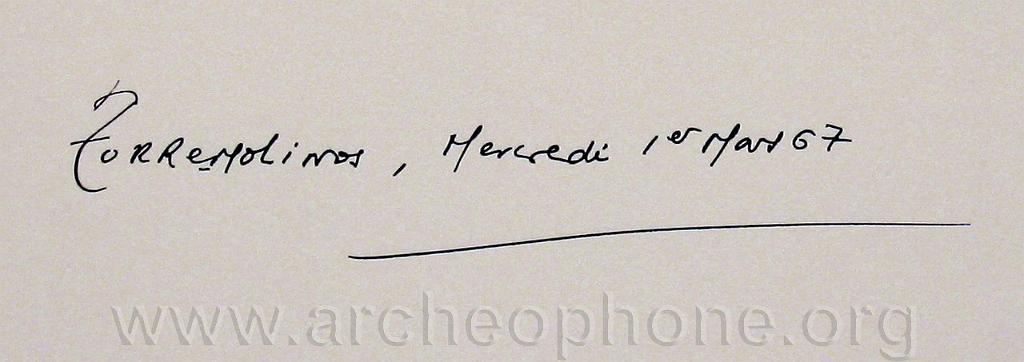 Torremolinos, Mercredi 1er Mars 67
www.archeophone.org